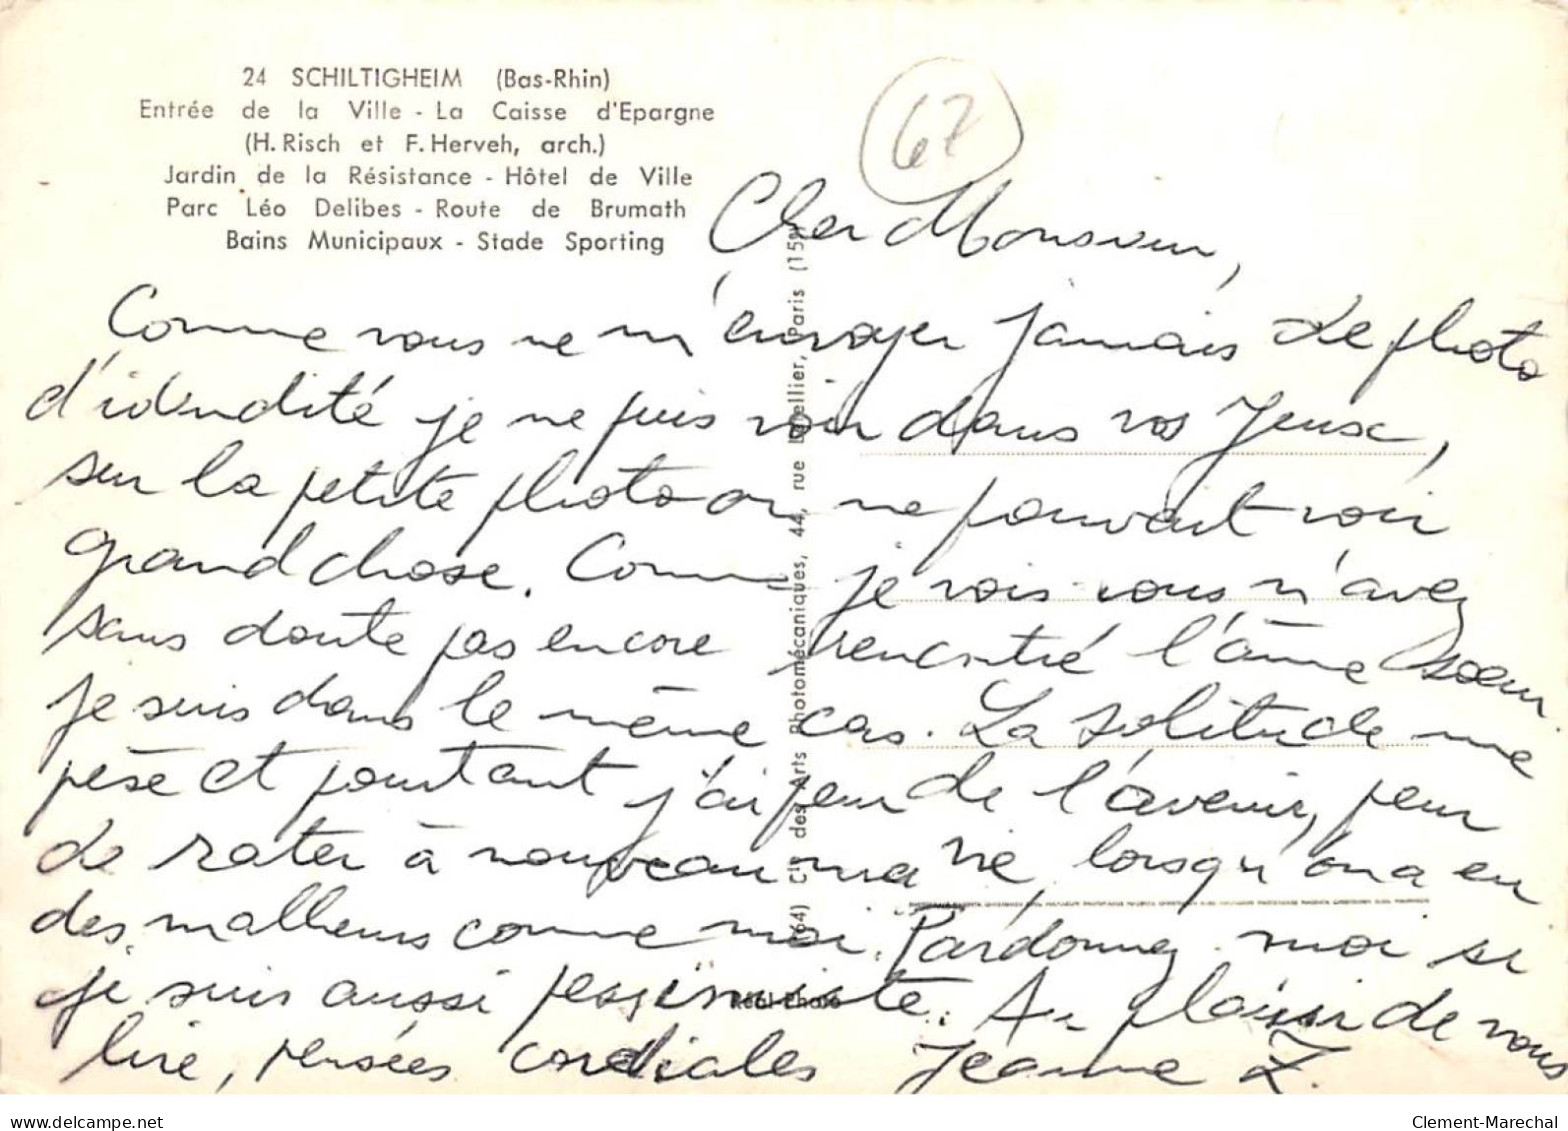 24 SCHILTIGHEIM (Bas-Rhin)
Entrée de la Ville - La Caisse d'Epargne
(H. Risch et F. Herveh, arch.)
Jardin de la Résistance - Hôtel de Ville
Parc Léo Delibes - Route de Brumath
Bains Municipaux - Stade Sporting
67
Cher Monsieur,
Comme vous ne m'envoyer jamais de photo
d'idendité je ne puis voir dans vos yeux,
sur la petite photo on ne pouvait voir
grand chose. Comme je vois vous n'avez
sans doute pas encore rencontré l'âme soeur
je suis dans le même cas. La solitude me
pèse et pourtant j'ai peur de l'avenir, peur
de rater à nouveau ma vie, lorsqu'on a eu
des malheurs comme moi. Pardonnez-moi si
je suis aussi pessimiste. Au plaisir de vous
lire, pensées cordiales Jeanne Z.
(64) Cie des Arts Photomécaniques, 44, rue Letellier, Paris (15e)
Réel Photo
www.delcampe.net
Clement-Marechal